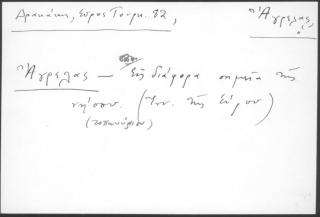 Δρακάκης, Σύρος Τουρ. 82,
Ἀγρελας,
Ἀγρελας — Εἰς διάφορα σημεῖα τῆς
νήσου. (Ἱν. τῆς Σύρου)
(τοπωνύμιον)